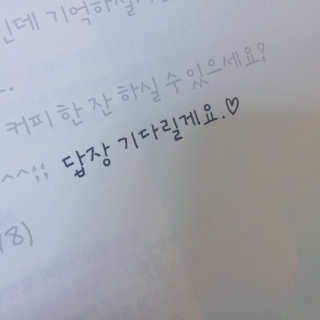 인데 기억하실
커피 한 잔 하실 수 있으세요?
^^;; 답장 기다릴게요.♡
8)